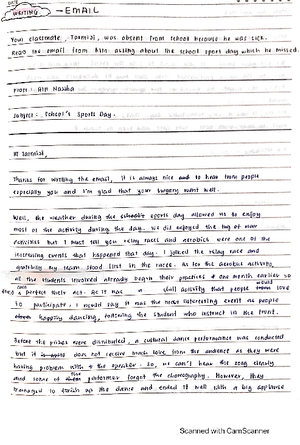 WRITING - EMAIL
Your classmate, Tasmizi, was absent from school because he was sick.
Read the email from him asking about the school sport day which he missed.
From : Ain Nasiha
Subject : School's Sports Day.
Hi
Thanks for writing the email, it is always nice to hear from people
especially you and I'm glad that your surgery went well.
Well, the weather during the sports day allowed us to enjoy
most of the activity during the day. We did enjoyed the tug of war
activities but I must tell you relay races and aerobics were one of the
interesting events that happened that day. I joined the relay race and
my team stood first in the races. As for the aerobic activity,
all the students involved already begin their practices a one month earlier so
they can perfect their act. As it was activity that people would love
to participate. I would say it was the most interesting event as people
happily dancing, following the student who instruct in the front.
Before the prizes were distributed, a cultural dance performance was conducted
but it does not receive much love from the audience as they were
having problem with the speaker. So, we can't hear the song clearly
and some of the performer forgot the choreography. However, they
managed to finish up the dance and ended it well with a big applause
Scanned with CamScanner